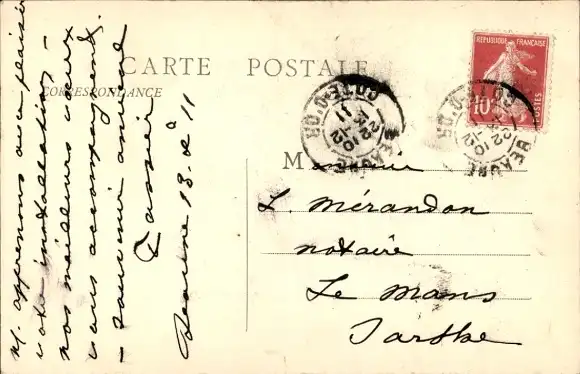 CARTE POSTALE
CORRESPONDANCE
N. apprenons avec plaisir
votre installation –
nos meilleurs vœux
vous accompagnent.
– Souvenir amical
Beaune 18. 11
RÉPUBLIQUE FRANÇAISE
10
POSTES
BEAUNE
COTE-D'OR
22 10
11
BEAUNE
COTE-D'OR
22 10
M
L. Mérandon
notaire
Le Mans
Sarthe